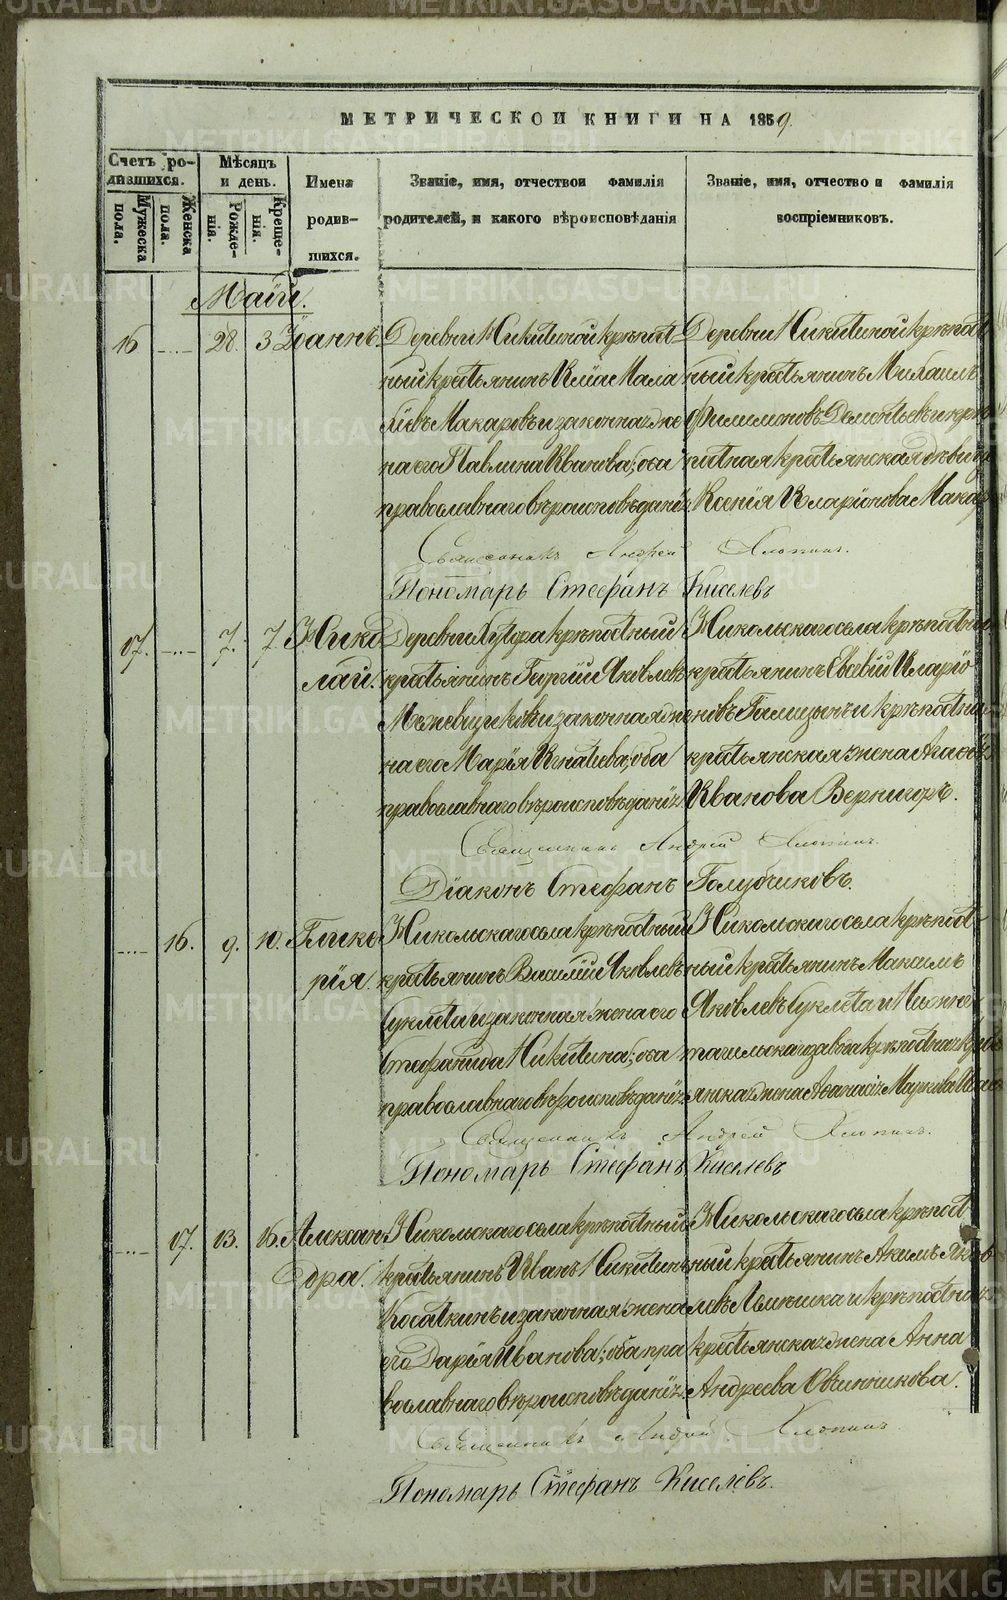 МЕТРИЧЕСКОИ КНИГИ НА 1859.
Счетъ ро-
дившихся.
Мѣсяцъ
и день.
Имена
родив-
шихся.
Званіе, имя, отчествои фамилія
родителей, и какого вѣроисповѣданія
Званіе, имя, отчество и фамилія
воспріемниковъ.
Мужеска
пола.
Женска
пола.
Рожде-
нія.
Креще-
нія.
Маій.
16 28. 3 Іоаннъ.
Деревни Никитиной крѣпост
ный крестьянинъ Илія Мала
хіевъ Макаровъ и законная же
на его Павлина Иванова; оба
православнаго вѣроисповѣданія.
Деревни Никитиной крѣпост
ный крестьянинъ Михаилъ
Филимоновъ Дементьевъ и крѣ
постная крестьянская дѣвица
Ксенія Иларіонова Макар
Священникъ Андрей Хлопинъ.
Пономарь Стефанъ Киселевъ
17. 7. 7. Нико
лай.
Деревни Хутора крѣпостный
крестьянинъ Георгій Яковлевъ
и законная же
на его Марія Игнатьева; оба
православнаго вѣроисповѣданія.
Никольскаго села крѣпостный
крестьянинъ Евсевій Иларіо
новъ Галицынъ и крѣпостная
крестьянская жена Агафія
Иванова Вернигоръ.
Священникъ Андрей Хлопинъ.
Діаконъ Стефанъ Голубчиковъ.
16. 9. 10. Глике
рія.
Никольскаго села крѣпостный
крестьянинъ Василій Яковлевъ
Суклета и законная жена его
Стефанида Никитина; оба
православнаго вѣроисповѣданія.
Никольскаго села крѣпост
ный крестьянинъ Максимъ
Яковлевъ Суклета и Нижне
тагильскаго завода крѣпостная крес
янская жена Афанасія Маркова
Священникъ Андрей Хлопинъ.
Пономарь Стефанъ Киселевъ
17. 13. 16. Алексан
дра.
Никольскаго села крѣпостный
крестьянинъ Иванъ Никитинъ
Косаткинъ и законная жена
его Дарія Иванова; оба пра
вославнаго вѣроисповѣданія.
Никольскаго села крѣпост
ный крестьянинъ Акимъ Яков
левъ и крѣпостная
крестьянская жена Анна
Андреева Овчинникова.
Священникъ Андрей Хлопинъ
Пономарь Стефанъ Киселевъ.
METRIKI.GASO-URAL.RU